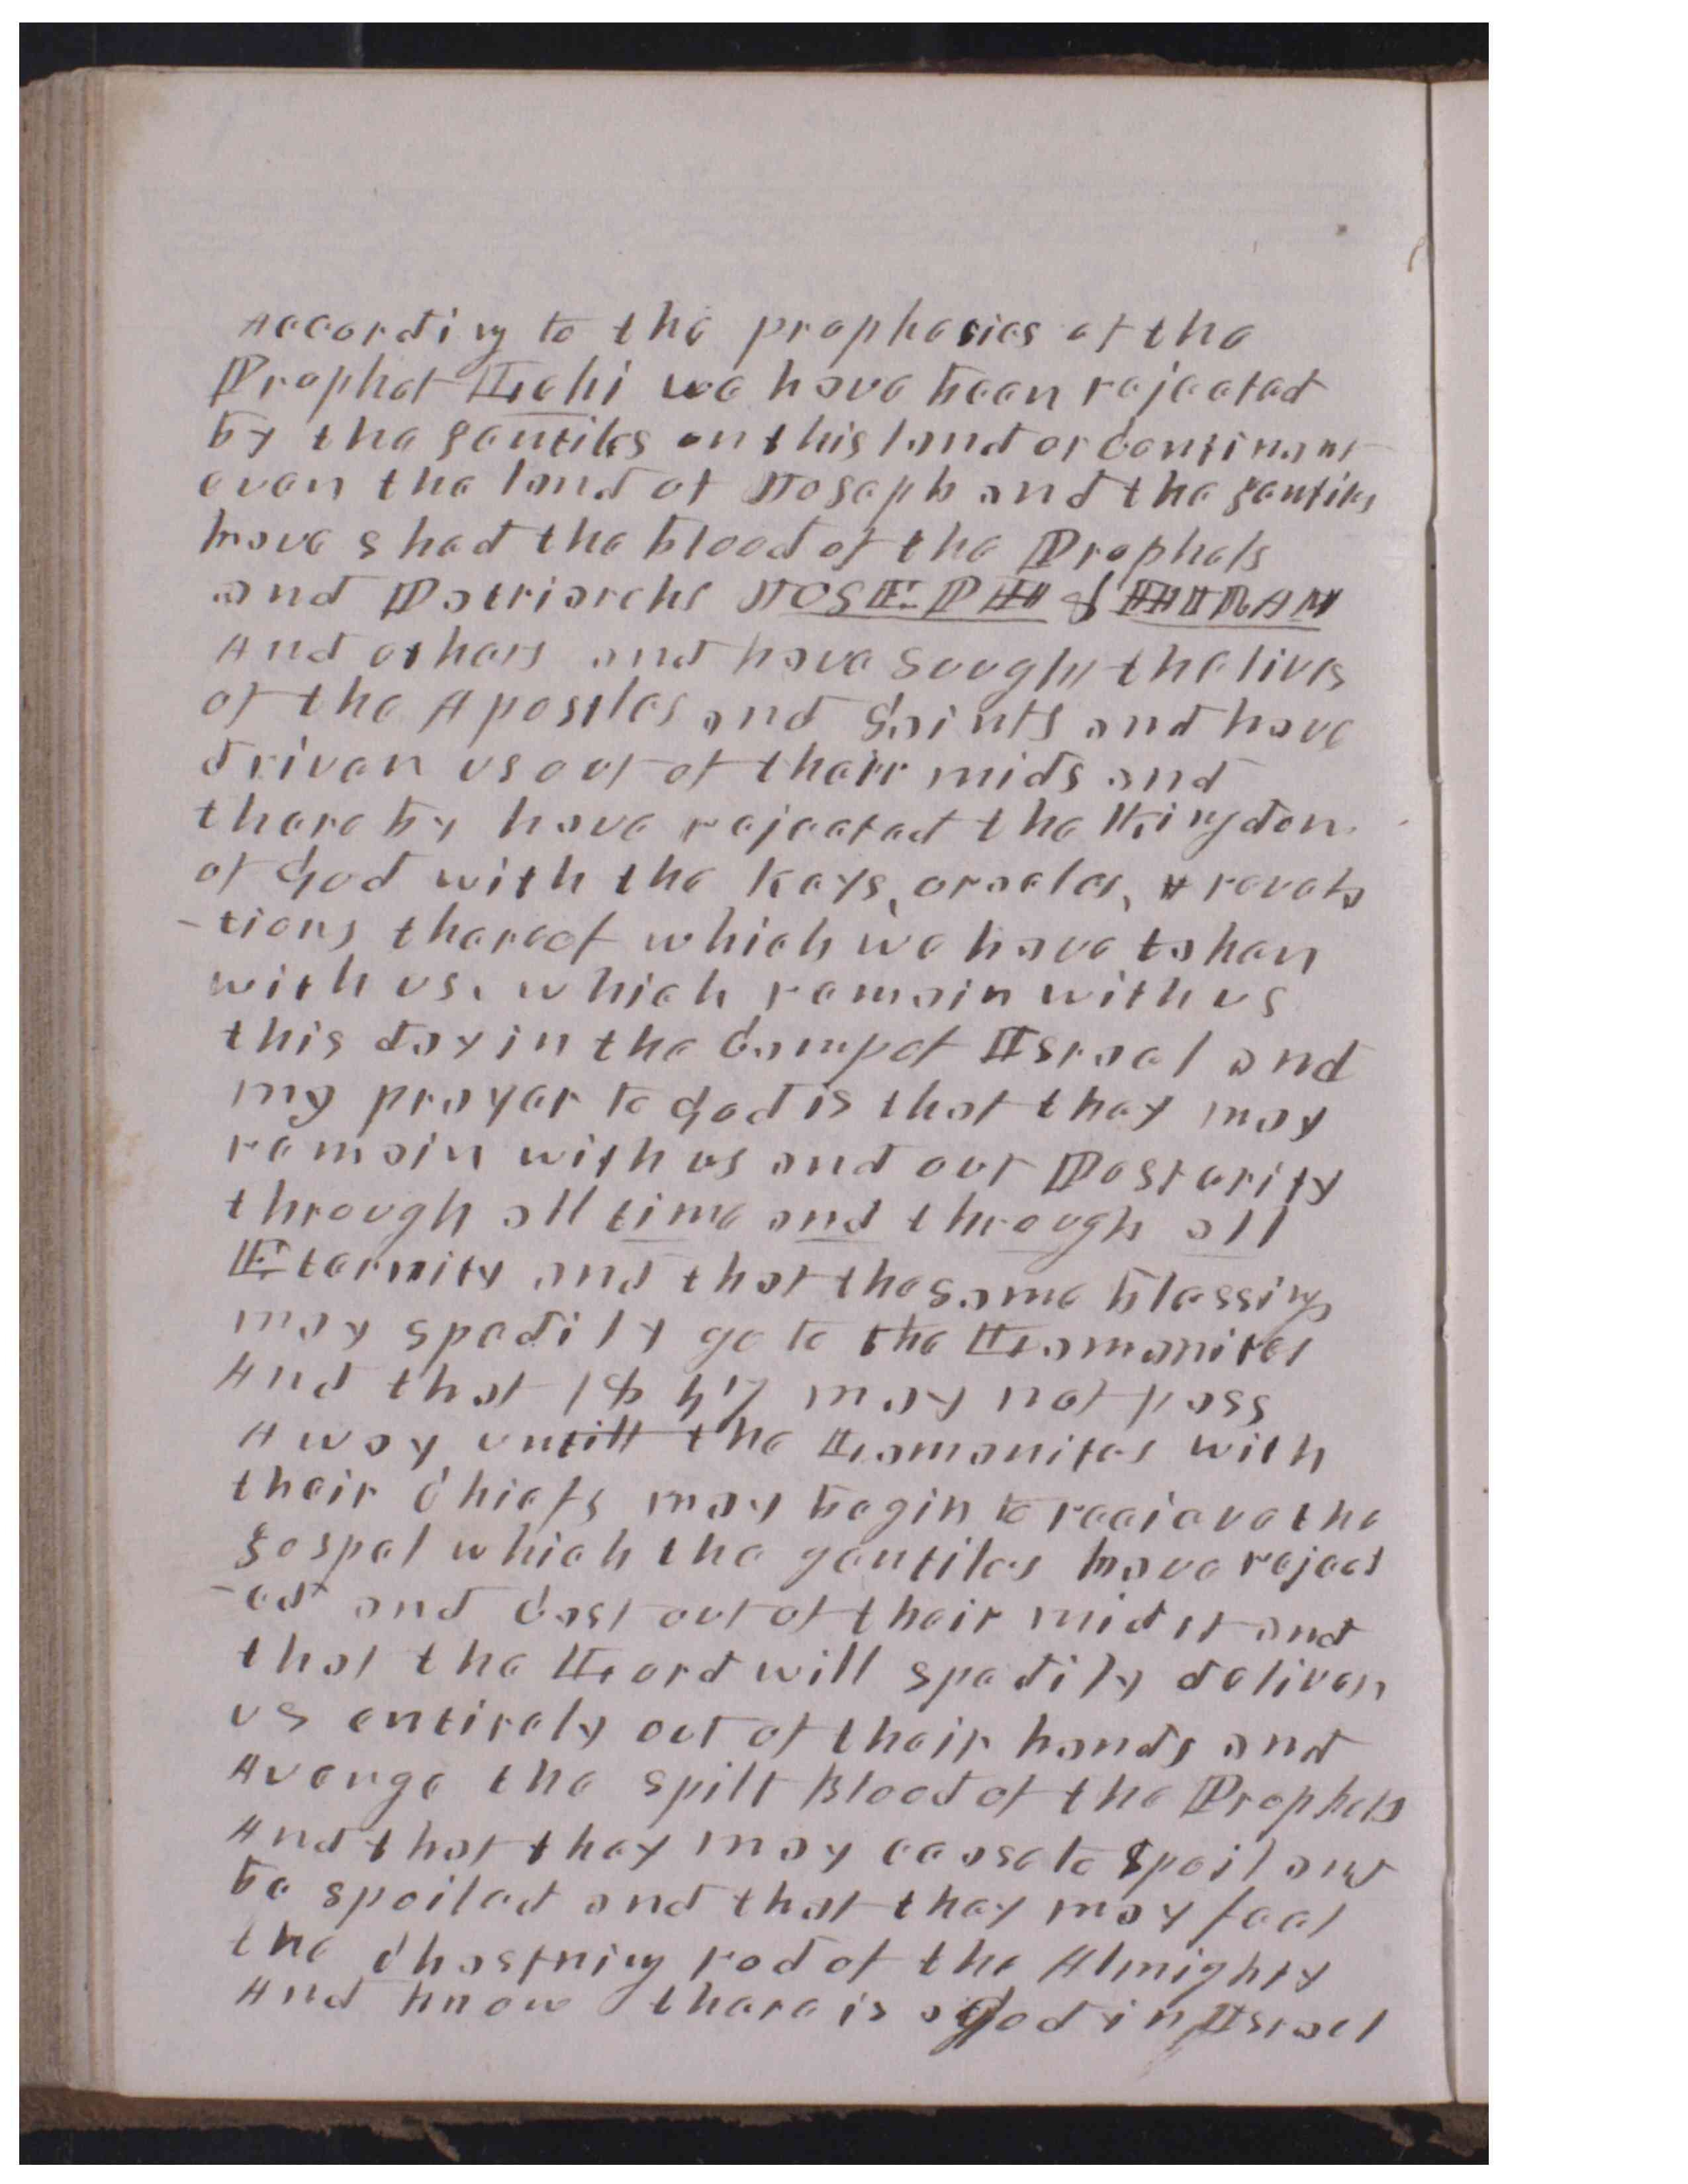 According to the prophesies of the
Prophet Lehi we have been rejected
by the gentiles on this land or Continant
even the land of Joseph and the gentiles
have shed the blood of the Prophets
and Patriarchs JOSEPH & HYRAM
And others and have Sought the lives
of the Apostles and Saints and have
driven us out of their mids and
thereby have rejected the Kingdom
of God with the keys, oracles, & revela
-tions thereof which we have taken
with us. which remain with us
this day in the Camp of Israel and
my prayer to God is that they may
remain with us and our Posterity
through all time and through all
Eternity and that the same blessings
may spedily go to the Lamanites
And that 1847 may not pass
Away untill the Lamanites with
their Chiefs may begin to recieve the
gospel which the gentiles have reject
-ed and Cast out of their midst and
that the Lord will spedily deliver
us entirely out of their hands and
Avenge the spilt Blood of the Prophets
And that they may cease to spoil and
be spoiled and that they may feel
the Chastning rod of the Almighty
And know there is a God in Israel